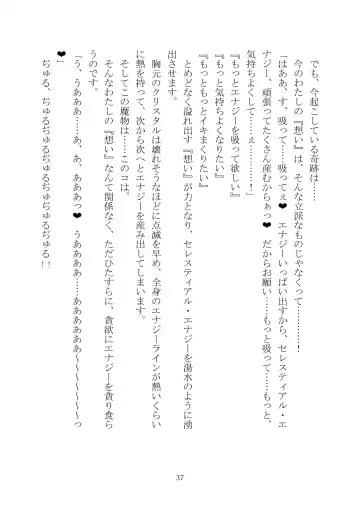 でも、今起こしている奇跡は……
今のわたしの『想い』は、そんな立派なものじゃなくって………！
「はああ、す、吸って……吸ってぇ❤　エナジーいっぱい出すから、セレスティアル・エ
ナジー、頑張ってたくさん産むからぁっ❤　だからお願い……もっと吸って……もっと、
気持ちよくして……ぇ………！」
『もっとエナジーを吸って欲しい』
『もっと気持ちよくなりたい』
『もっともっとイキまくりたい』
とめどなく溢れ出す『想い』が力となり、セレスティアル・エナジーを湯水のように湧き
出させます。
胸元のクリスタルは壊れそうなほどに点滅を早め、全身のエナジーラインが熱いくらい
に熱を持って、次から次へとエナジーを産み出してしまいます。
そしてこの魔物は……このコは。
そんなわたしの『想い』なんて関係なく、ただひたすらに、貪欲にエナジーを貪り食ら
うのです。
「う、うあああ……あ、あ、あああっ❤　うああああ……あああああ〜〜〜〜〜〜っ
❤」
ぢゅる、ぢゅるぢゅるぢゅるぢゅるぢゅるぢゅる！！
37